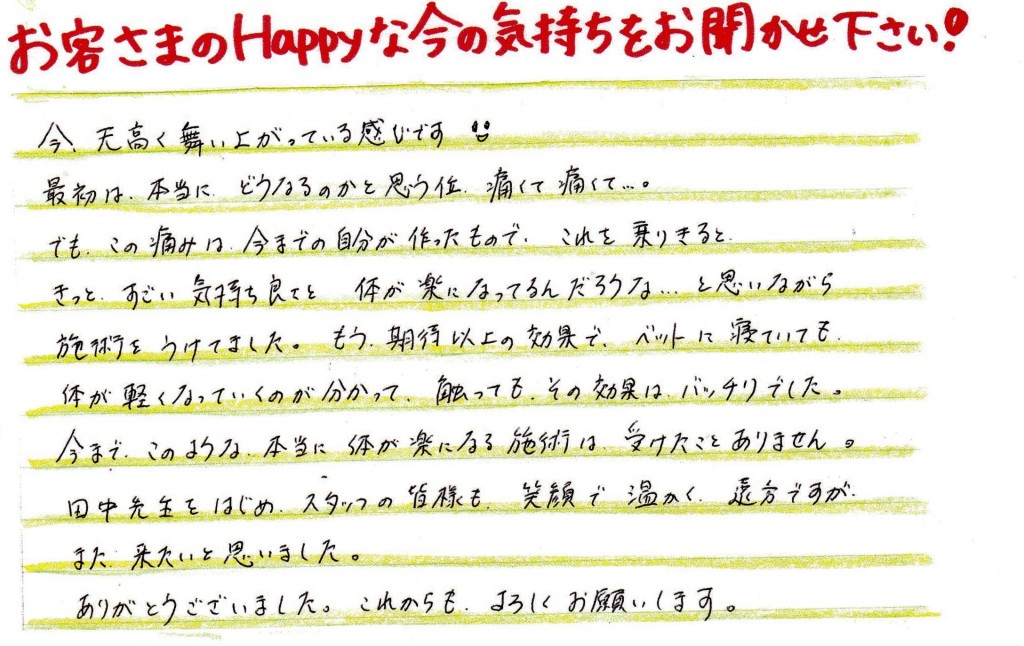 お客さまのHappyな今の気持ちをお聞かせ下さい!
今、天高く舞い上がっている感じです
最初は、本当に、どうなるのかと思う位、痛くて痛くて…。
でも、この痛みは、今までの自分が作ったもので、これを乗りきると、
きっと、すごい気持ち良さと 体が楽になってるんだろうな…と思いながら
施術をうけてました。もう、期待以上の効果で、ベットに寝ていても、
体が軽くなっていくのが分かって、触っても、その効果は、バッチリでした。
今まで、このような、本当に体が楽になる施術は、受けたことありません。
田中先生をはじめ、スタッフの皆様も、笑顔で温かく、遠方ですが、
また、来たいと思いました。
ありがとうございました。これからも、よろしくお願いします。